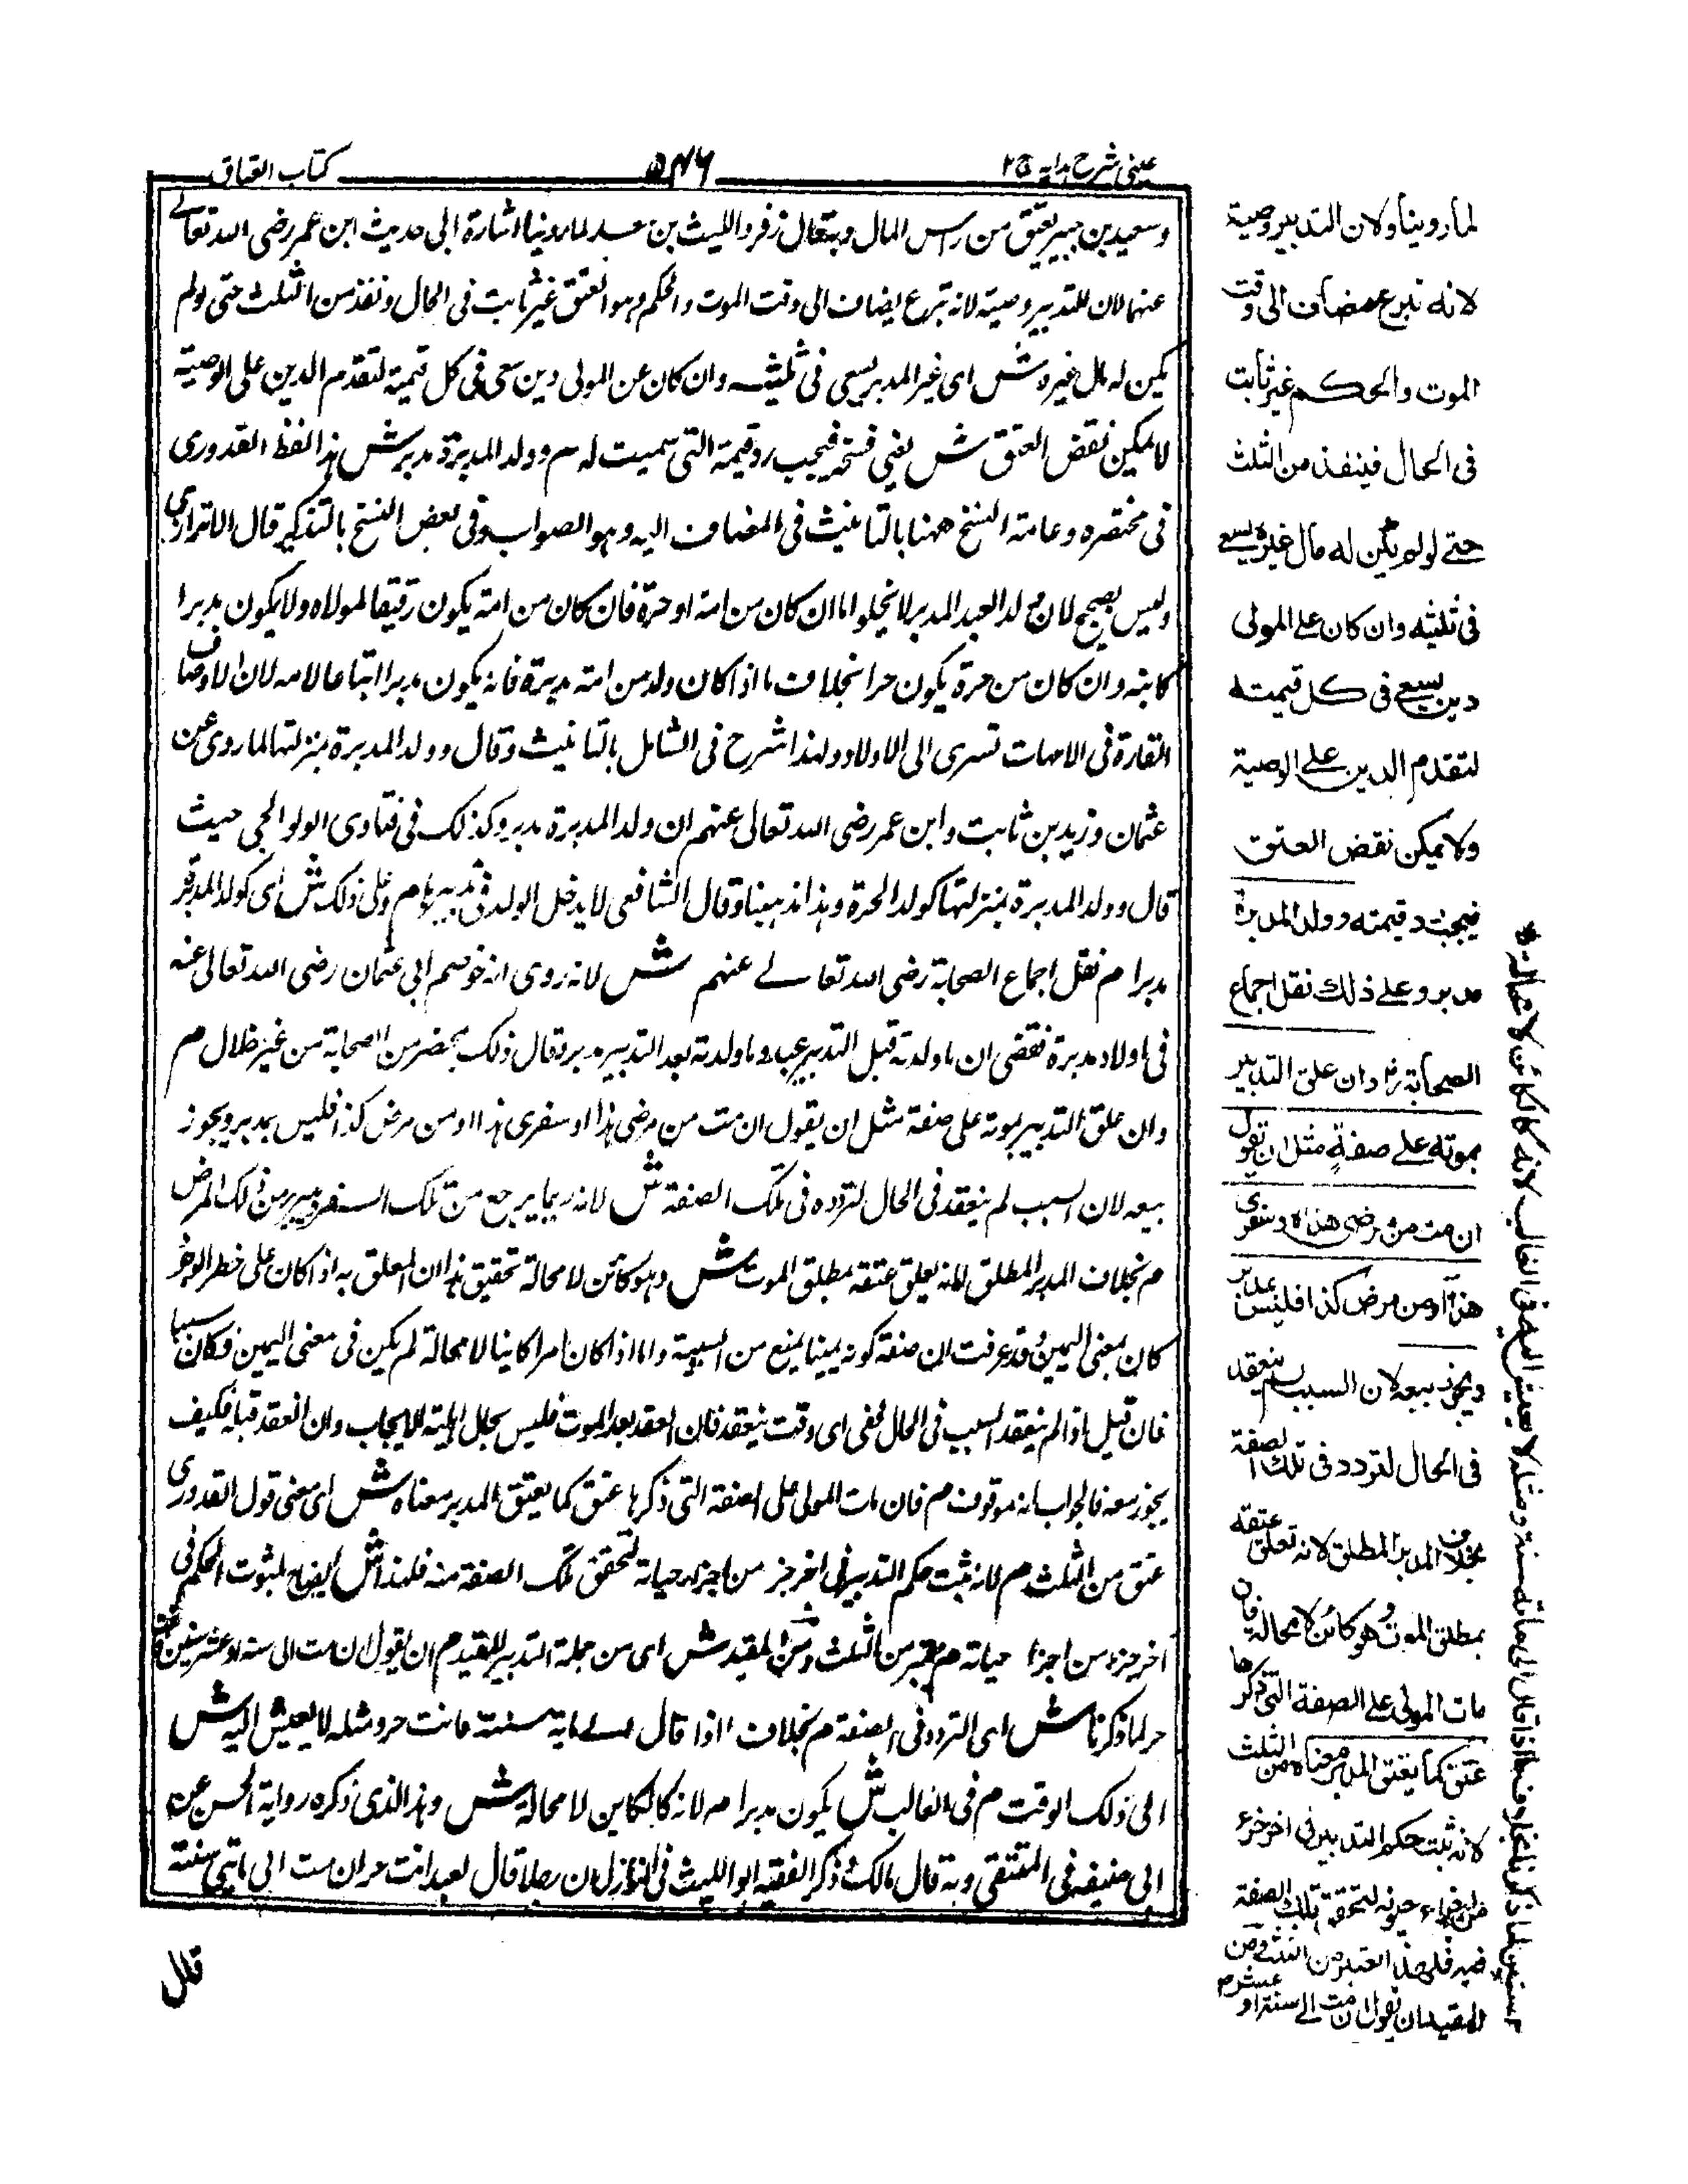 عينى شرح هداية ج٢
٥٤٦
كتاب العتاق
وسعيد بن جبير يعتق من راس المال وبه قال زفر والليث بن سعد لما روينا اشارة الى حديث ابن عمر رضى الله تعالى
عنهما لان للتدبير وصية لانه تبرع يضاف الى وقت الموت والحكم وهو العتق غير ثابت فى الحال ونفذ من الثلث حتى لو لم
يكن له مال غيره ش اى غير المدبر يسعى فى ثلثيه وان كان عن المولى دين سعى فى كل قيمته لتقدم الدين على الوصية
لا يمكن نقض العتق ش يعنى فسخه فيجب رد قيمته التى سميت له م وولد المدبرة مدبر ش هذا لفظ القدورى
فى مختصره وعامة النسخ ههنا بالتانيث فى المضاف اليه وهو الصواب وفى بعض النسخ بالتذكير قال الاترازى
وليس بصحيح لان ولد العبد المدبر لا يخلوا اما ان كان من امة او حرة فان كان من امة يكون رقيقا لمولاه ولا يكون مدبرا
كابيه وان كان من حرة يكون حرا بخلاف ما اذا كان ولد من امة مدبرة فانه يكون مدبرا اتباعا لامه لان الاوصاف
القارة فى الامهات تسرى الى الاولاد ولهذا شرح فى الشامل بالتانيث وقال وولد المدبرة بمنزلتها لما روى عن
عثمان وزيد بن ثابت وابن عمر رضى الله تعالى عنهم ان ولد المدبرة مدبر وكذلك فى فتاوى الولوالجى حيث
قال وولد المدبرة بمنزلتها كولد الحرة وهذا مذهبنا وقال الشافعى لا يدخل الولد فى تدبيرها م وعلى ذلك ش اى كولد المدبرة
مدبرا م نقل اجماع الصحابة رضى الله تعالى عنهم ش لانه روى انه خوصم الى عثمان رضى الله تعالى عنه
فى اولاد مدبرة فقضى ان ما ولدته قبل التدبير عبد وما ولدته بعد التدبير مدبر وقال ذلك بمحضر من الصحابة من غير خلاف م
وان علق التدبير بموته على صفة مثل ان يقول ان مت من مرضى هذا او سفرى هذا او من مرض كذا فليس بمدبر ويجوز
بيعه لان السبب لم ينعقد فى الحال لتردده فى تلك الصفة ش لانه ربما يرجع من تلك السفر ويبرء من ذلك المرض
م بخلاف المدبر المطلق لانه يعلق عتقه بمطلق الموت ش وهو كائن لا محالة تحقيق هذا ان المعلق به اذا كان على خطر الوجود
كان بمعنى اليمين وقد عرفت ان صفة كونه يمينا يمنع من السببية واما اذا كان امرا كاينا لا محالة لم يكن فى معنى اليمين فكان سببا
فان قيل اذا لم ينعقد السبب فى الحال ففى اى وقت ينعقد فان انعقد بعد الموت فليس بحال اهلية للايجاب وان انعقد قبله فكيف
يجوز بيعه فالجواب انه موقوف م فان مات المولى على الصفة التى ذكرها عتق كما يعتق المدبر معناه ش اى معنى قول القدورى
عتق من الثلث م لانه يثبت حكم التدبير فى اخر جزء من اجزاء حياته لتحقق تلك الصفة منه فلهذا ش ايضاح لثبوت الحكم فى
اخر جزء من اجزاء حياته م يعتبر من الثلث ومن المقيد ش اى من جملة التدبير المقيد م ان يقول ان مت الى سنة او عشر سنين فانت
حر لما ذكرنا ش اى التردد فى الصفة م بخلاف ما اذا قال الى مائة سنة فانت حر ومثله لا يعيش اليه ش
الى ذلك الوقت م فى الغالب ش يكون مدبرا م لانه كالكاين لا محالة ش وهذا الذى ذكره رواية الحسن عن
ابى حنيفه فى المنتقى وبه قال مالك ذكر الفقيه ابو الليث فى النوازل ان رجلا قال لعبده انت حر ان مت الى مائتى سنة
قال
لما روينا ولان التدبير وصية
لانه تبرع مضاف الى وقت
الموت والحكم غير ثابت
فى الحال فينفذ من الثلث
حتے لو لم يكن له مال غيره يسعے
فى ثلثيه وان كان على المولى
دين يسعے فى كل قيمته
لتقدم الدين على الوصية
ولا يمكن نقض العتق
فيجب رد قيمته وولد المدبرة
مدبر وعلے ذلك نقل اجماع
الصحابة رض وان علق التدبير
بموته علے صفة مثل ان يقول
ان مت من مرضى هذا او سفرى
هذا او من مرض كذا فليس بمدبر
ويجوز بيعه لان السبب لم ينعقد
فى الحال لتردد فى تلك الصفة
بخلاف المدبر المطلق لانه تعلق عتقه
بمطلق الموت وهو كائن لا محالة فان
مات المولى على الصفة التى ذكرها
عتق كما يعتق المدبر معناه من الثلث
لانه ثبت حكم التدبير فى اخر جزء
من اجزاء حيوته لتحقق تلك الصفة
فيه فلهذا اعتبر من الثلث ومن
المقيد ان يقول ان مت الے سنة او عشر
سنين لما ذكرنا بخلاف ما اذا قال الى مائة سنة ومثله لا يعيش اليه فى الغالب لانه كالكائن لا محالة